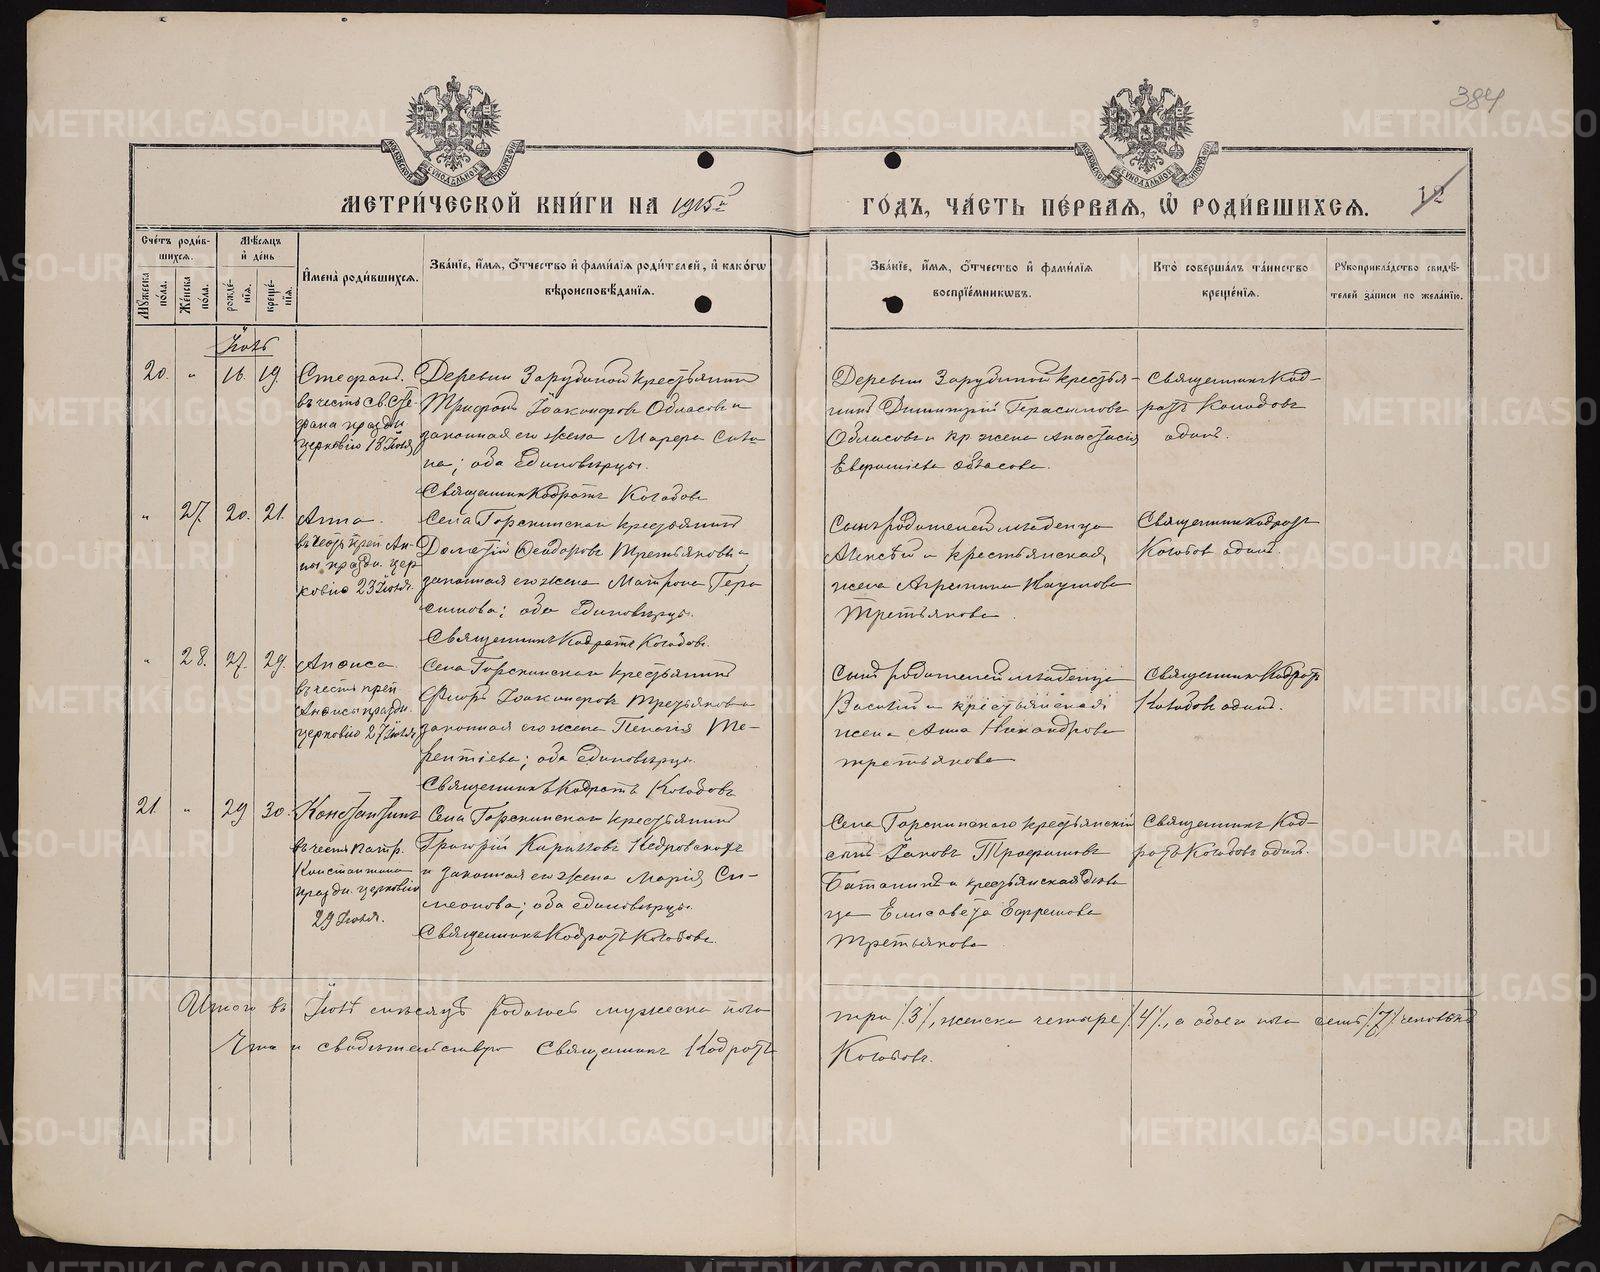 384
МЕТРИ́ЧЕСКОЙ КНИ́ГИ НА 1915 г.
ГО́ДЪ, ЧА́СТЬ ПЕ́РВАЯ, Ѡ҆ РОДИ́ВШИХСЯ.
12
Счéтъ роди́в-
шихся.
Мꙋ́жеска по́ла.
Же́нска по́ла.
Мѣ́сяцъ
и҆ де́нь
рожде́-
нїя.
креще́-
нїя.
И҆мена̀ роди́вшихся.
Зва́нїе, и҆́мя, ѻ҆́тчество и҆ фами́лїя роди́телей, и҆ како́гѡ
вѣроисповѣ́данїя.
Зва́нїе, и҆́мя, ѻ҆́тчество и҆ фами́лїя
воспрїе́мникѡвъ.
Кто̀ соверша́лъ та́инство
креще́нїя.
Рꙋкоприкла́дство свидѣ́-
телей за́писи по жела́нїю.
Іюль
20. " 16. 19.
Стефанъ.
въ честь Св. Сте-
фана праздн.
церковію 13 Іюля
Деревни Зарубиной крестьянинъ
Трифонъ Іоакимовъ Обласовъ и
законная его жена Марѳа Сави
на; оба Единовѣрцы.
Священникъ Кодратъ Колобовъ
Деревни Зарубиной крестья-
нинъ Димитрій Герасимовъ
Обласовъ и кр жена Анастасія
Обласова.
Священникъ Код-
ратъ Колобовъ
одинъ.
" 27. 20. 21.
Анна.
въ честь прп. Ан-
ны, праздн. цер
ковію 23 Іюля.
Села Горскинскаго крестьянинъ
Ѳеодоровъ Третьяковъ и
законная его жена Матрона Гера
симова; оба Единовѣрцы.
Священникъ Кодратъ Колобовъ.
Сынъ родителей младенца
Алексѣй и крестьянская
жена Агрипина Наумова
Третьякова
Священникъ Кодратъ
Колобовъ одинъ.
" 28. 27. 29.
Анѳиса.
въ честь прп.
Анѳисы праздн.
церковію 27 Іюля
Села Горскинскаго крестьянинъ
Флоръ Третьяковъ и
законная его жена Пелагія Те-
рентіева; оба Единовѣрцы.
Священникъ Кодратъ Колобовъ
Сынъ родителей младенца
Василій и крестьянская
жена Анна Никандрова
Третьякова
Священникъ Кодратъ
Колобовъ одинъ.
21. " 29 30.
Константинъ
въ честь патр.
Константина
праздн. церковію
29 Іюля.
Села Горскинскаго крестьянинъ
Григорій Кирилловъ Кедровскихъ
и законная его жена Марія Си-
меонова; оба единовѣрцы.
Священникъ Кодратъ Колобовъ.
Села Горскинскаго крестьянскій
сынъ Іаковъ Трофимовъ
Баталинъ и крестьянская дѣви
ца Елисавета Ефремова
Третьякова
Священникъ Код-
ратъ Колобовъ одинъ.
Итого въ Іюлѣ мѣсяцѣ родилось мужеска пола три /3/, женска четыре /4/, а обоего пола семь /7/ человѣкъ
Священникъ Кодратъ Колобовъ.
METRIKI.GASO-URAL.RU